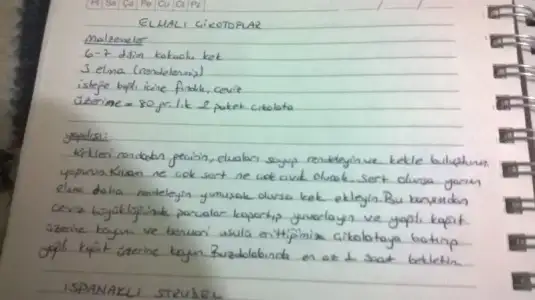 Pt Sa Ça Pe Cu Ct Pz
ELMALI ÇİKOTOPLAR
Malzemeler
6-7 dilim kakaolu kek
3 elma (rendelenmiş)
isteğe bağlı içine fındık, ceviz
üzerine = 80 gr. lık 2 paket çikolata
yapılışı:
Kekleri rondodan geçirin, elmaları soyup rendeleyin ve kekle buluşturun
yoğurun. Kıvam ne çok sert ne çok cıvık olacak. Sert olursa yarım
elma daha rendeleyin yumuşak olursa kek ekleyin. Bu karışımdan
ceviz büyüklüğünde parçalar kopartıp yuvarlayın ve yağlı kağıt
üzerine koyun ve benmari usulü erittiğimiz çikolataya batırıp
yağlı kağıt üzerine koyun. Buzdolabında en az 1 saat bekletin.
ISPANAKLI STRUDEL